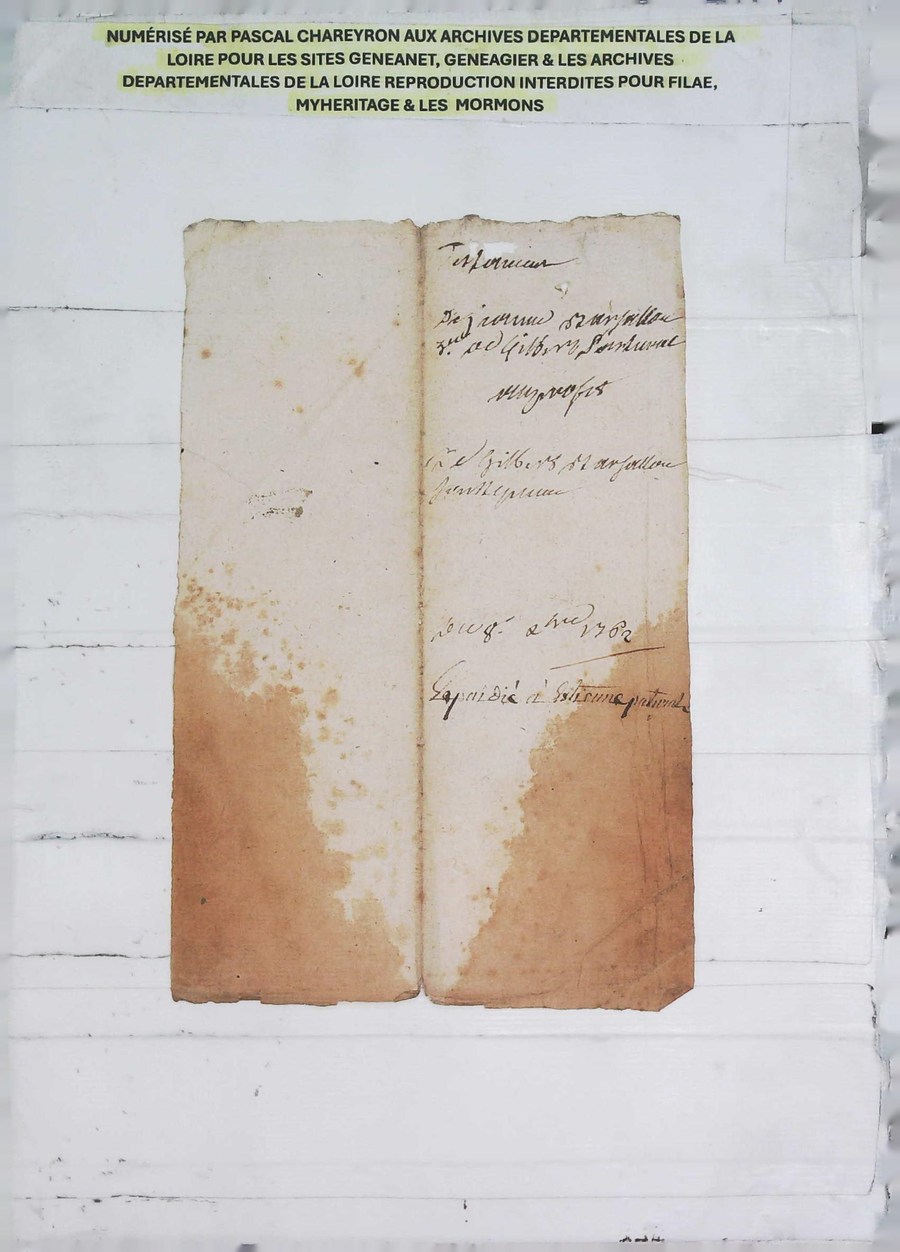 NUMÉRISÉ PAR PASCAL CHAREYRON AUX ARCHIVES DEPARTEMENTALES DE LA
LOIRE POUR LES SITES GENEANET, GENEAGIER & LES ARCHIVES
DEPARTEMENTALES DE LA LOIRE REPRODUCTION INTERDITES POUR FILAE,
MYHERITAGE & LES MORMONS
Testamen
De jeanne
de Gilbert
au profit
de Gilbert
Du 8.e 1762
Expédié à Estienne